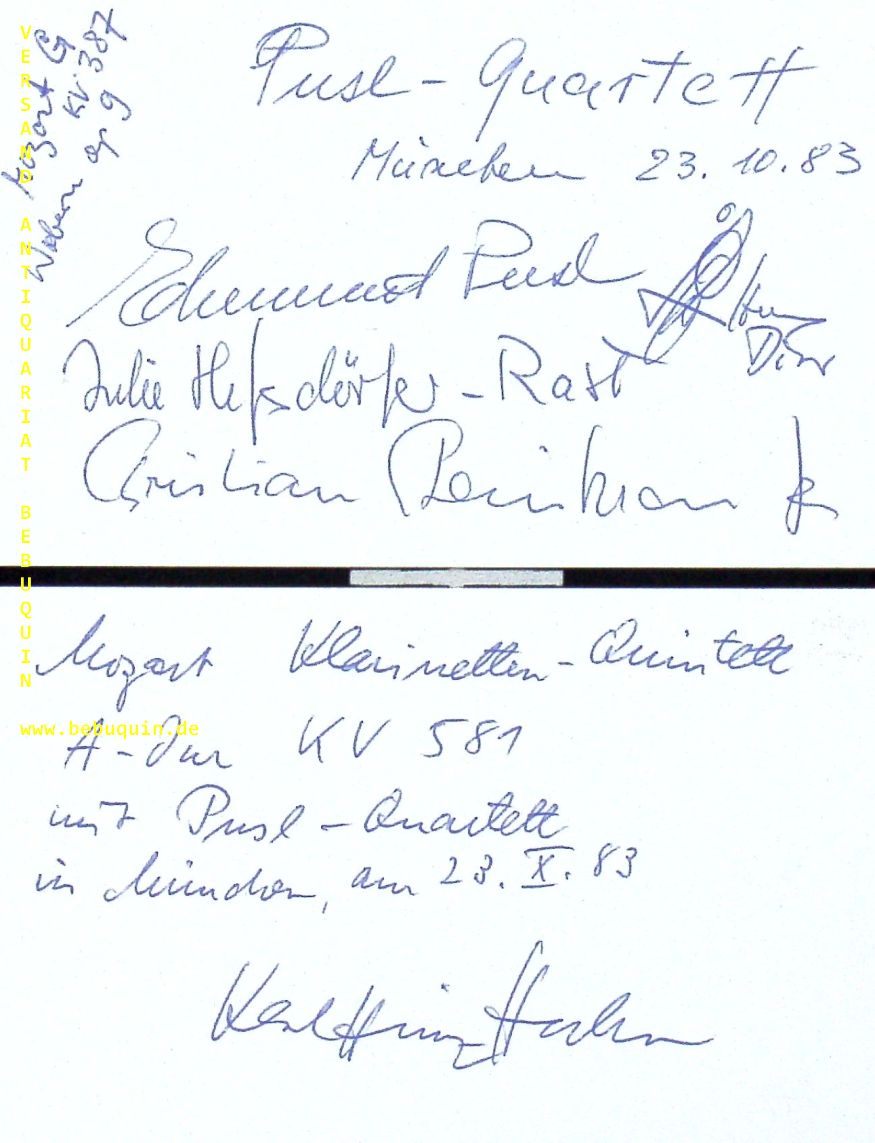 Mozart G
KV 387
Webern op 9
Pusl - Quartett
München 23.10.83
Edmund Pusl
Julie
- Rast
Christian
Mozart Klarinetten-Quintett
A-Dur KV 581
mit Pusl - Quartett
in München, am 23. X. 83
Karl Heinz Hahn
VERSAND ANTIQUARIAT BEBUQUIN
www.bebuquin.de